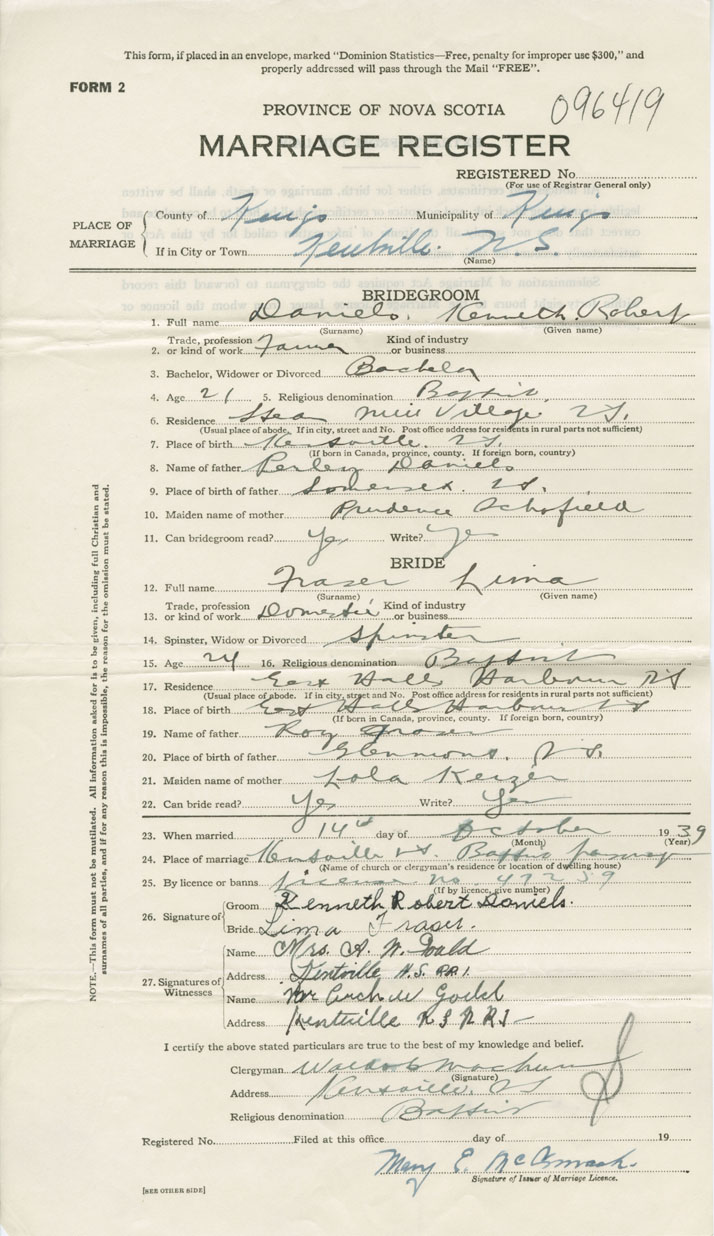 This form, if placed in an envelope, marked "Dominion Statistics—Free, penalty for improper use $300," and
properly addressed will pass through the Mail "FREE".
FORM 2
096419
PROVINCE OF NOVA SCOTIA
MARRIAGE REGISTER
REGISTERED No.
(For use of Registrar General only)
PLACE OF MARRIAGE
County of Kings Municipality of Kings
If in City or Town Kentville N.S.
(Name)
BRIDEGROOM
1. Full name Daniels, Kenneth Robert
(Surname) (Given name)
2. Trade, profession or kind of work Farmer Kind of industry or business
3. Bachelor, Widower or Divorced Bachelor
4. Age 21 5. Religious denomination Baptist
6. Residence Steam Mill Village N.S.
(Usual place of abode. If in city, street and No. Post office address for residents in rural parts not sufficient)
7. Place of birth Kentville N.S.
(If born in Canada, province, county. If foreign born, country)
8. Name of father Perley Daniels
9. Place of birth of father Somerset N.S.
10. Maiden name of mother Prudence Schofield
11. Can bridegroom read? Yes Write? Yes
BRIDE
12. Full name Fraser Lima
(Surname) (Given name)
13. Trade, profession or kind of work Domestic Kind of industry or business
14. Spinster, Widow or Divorced Spinster
15. Age 24 16. Religious denomination Baptist
17. Residence East Halls Harbour NS
(Usual place of abode. If in city, street and No. Post office address for residents in rural parts not sufficient)
18. Place of birth East Halls Harbour NS
(If born in Canada, province, county. If foreign born, country)
19. Name of father Roy Fraser
20. Place of birth of father Glenmont, N.S.
21. Maiden name of mother Lola Keizer
22. Can bride read? Yes Write? Yes
23. When married 14th day of October 1939
(Month) (Year)
24. Place of marriage Kentville N.S. Baptist parsonage
(Name of church or clergyman's residence or location of dwelling house)
25. By licence or banns license no. 47239
(If by licence, give number)
26. Signature of
Groom Kenneth Robert Daniels.
Bride Lima Fraser.
27. Signatures of Witnesses
Name Mrs. A. W.
Address Kentville N.S. RR1.
Name Mr Arch W
Address Kentville N S R R 1
I certify the above stated particulars are true to the best of my knowledge and belief.
Clergyman
(Signature)
Address Kentville, NS
Religious denomination Baptist
Registered No. Filed at this office day of 19
Mary E. McCormack.
Signature of Issuer of Marriage Licence.
[SEE OTHER SIDE]
NOTE.—This form must not be mutilated. All information asked for is to be given, including full Christian and
surnames of all parties, and if for any reason this is impossible, the reason for the omission must be stated.